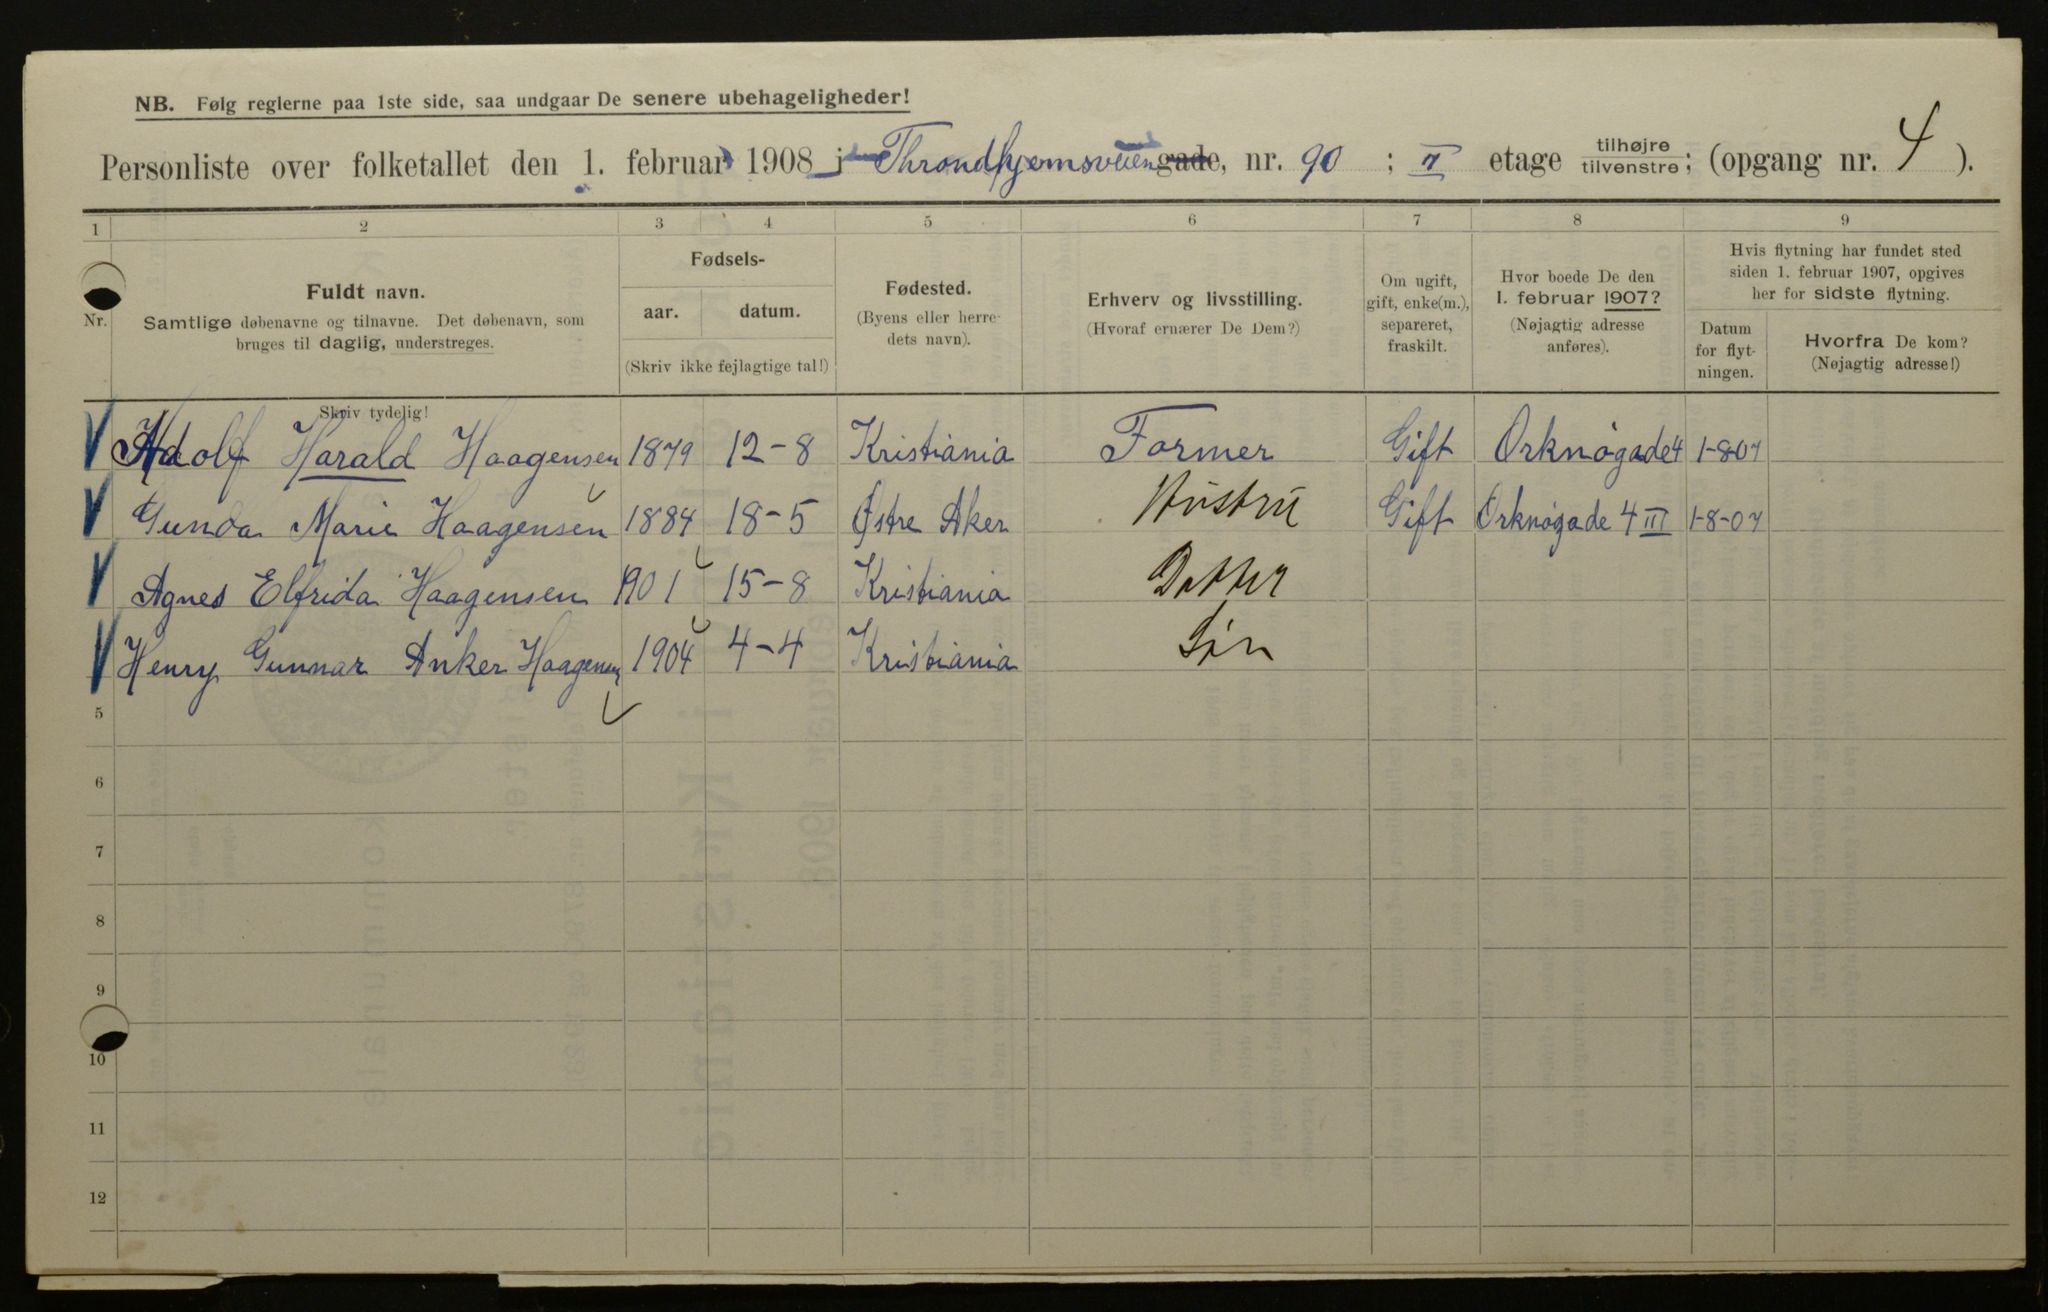 NB. Følg reglerne paa 1ste side, saa undgaar De senere ubehageligheder!
Personliste over folketallet den 1. februar 1908 i Throndhjemsveien gade, nr. 90 ; II etage tilhøjre tilvenstre; (opgang nr. 4 ).
1 2 3 4 5 6 7 8 9
Nr.
Fuldt navn.
Samtlige døbenavne og tilnavne. Det døbenavn, som
bruges til daglig, understreges.
Skriv tydelig!
Fødsels-
aar. datum.
(Skriv ikke fejlagtige tal!)
Fødested.
(Byens eller herre-
dets navn).
Erhverv og livsstilling.
(Hvoraf ernærer De Dem?)
Om ugift,
gift, enke(m.),
separeret,
fraskilt.
Hvor boede De den
1. februar 1907?
(Nøjagtig adresse
anføres).
Hvis flytning har fundet sted
siden 1. februar 1907, opgives
her for sidste flytning.
Datum
for flyt-
ningen.
Hvorfra De kom?
(Nøjagtig adresse!)
Adolf Harald Haagensen 1879 12-8 Kristiania Former Gift Orknøgade 4 1-8-07
Gunda Marie Haagensen 1884 18-5 Østre Aker Hustru Gift Orknøgade 4 III 1-8-07
Agnes Elfrida Haagensen 1901 15-8 Kristiania Datter
Henry Gunnar Anker Haagensen 1904 4-4 Kristiania Søn
5
6
7
8
9
10
11
12